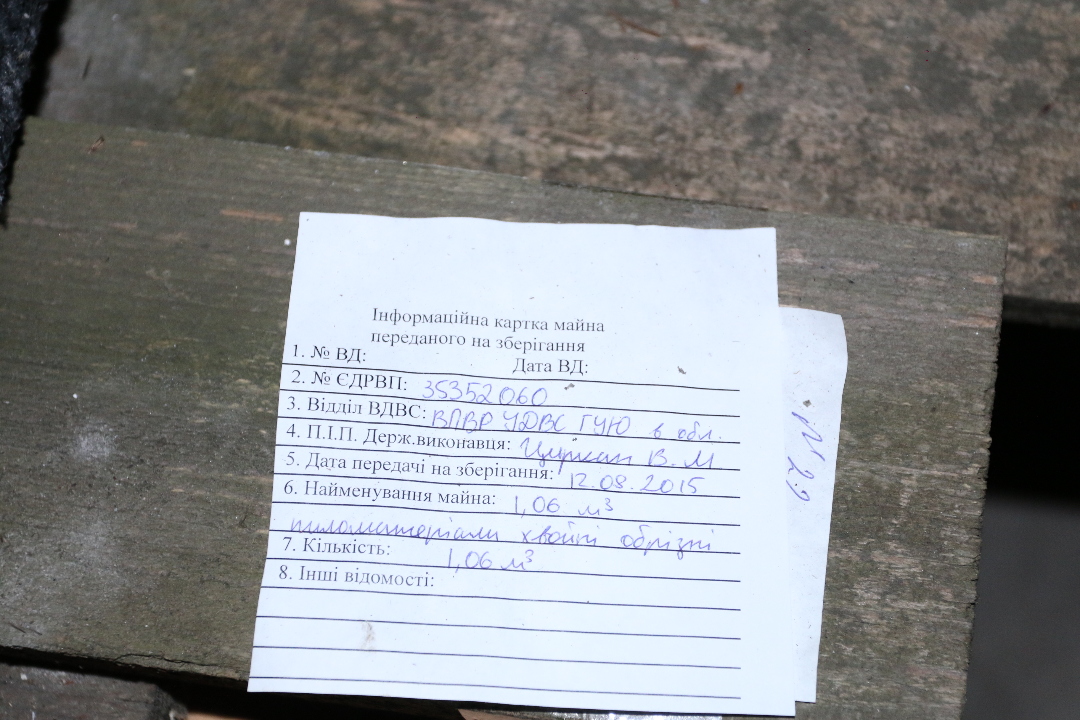 Інформаційна картка майна
переданого на зберігання
1. № ВД: Дата ВД:
2. № ЄДРВП: 35352060
3. Відділ ВДВС: ВПВР УДВС ГУЮ в обл.
4. П.І.П. Держ.виконавця: Циркан В. М
5. Дата передачі на зберігання: 12.08.2015
6. Найменування майна: 1,06 м³
пиломатеріали хвойні обрізні
7. Кількість: 1,06 м³
8. Інші відомості: